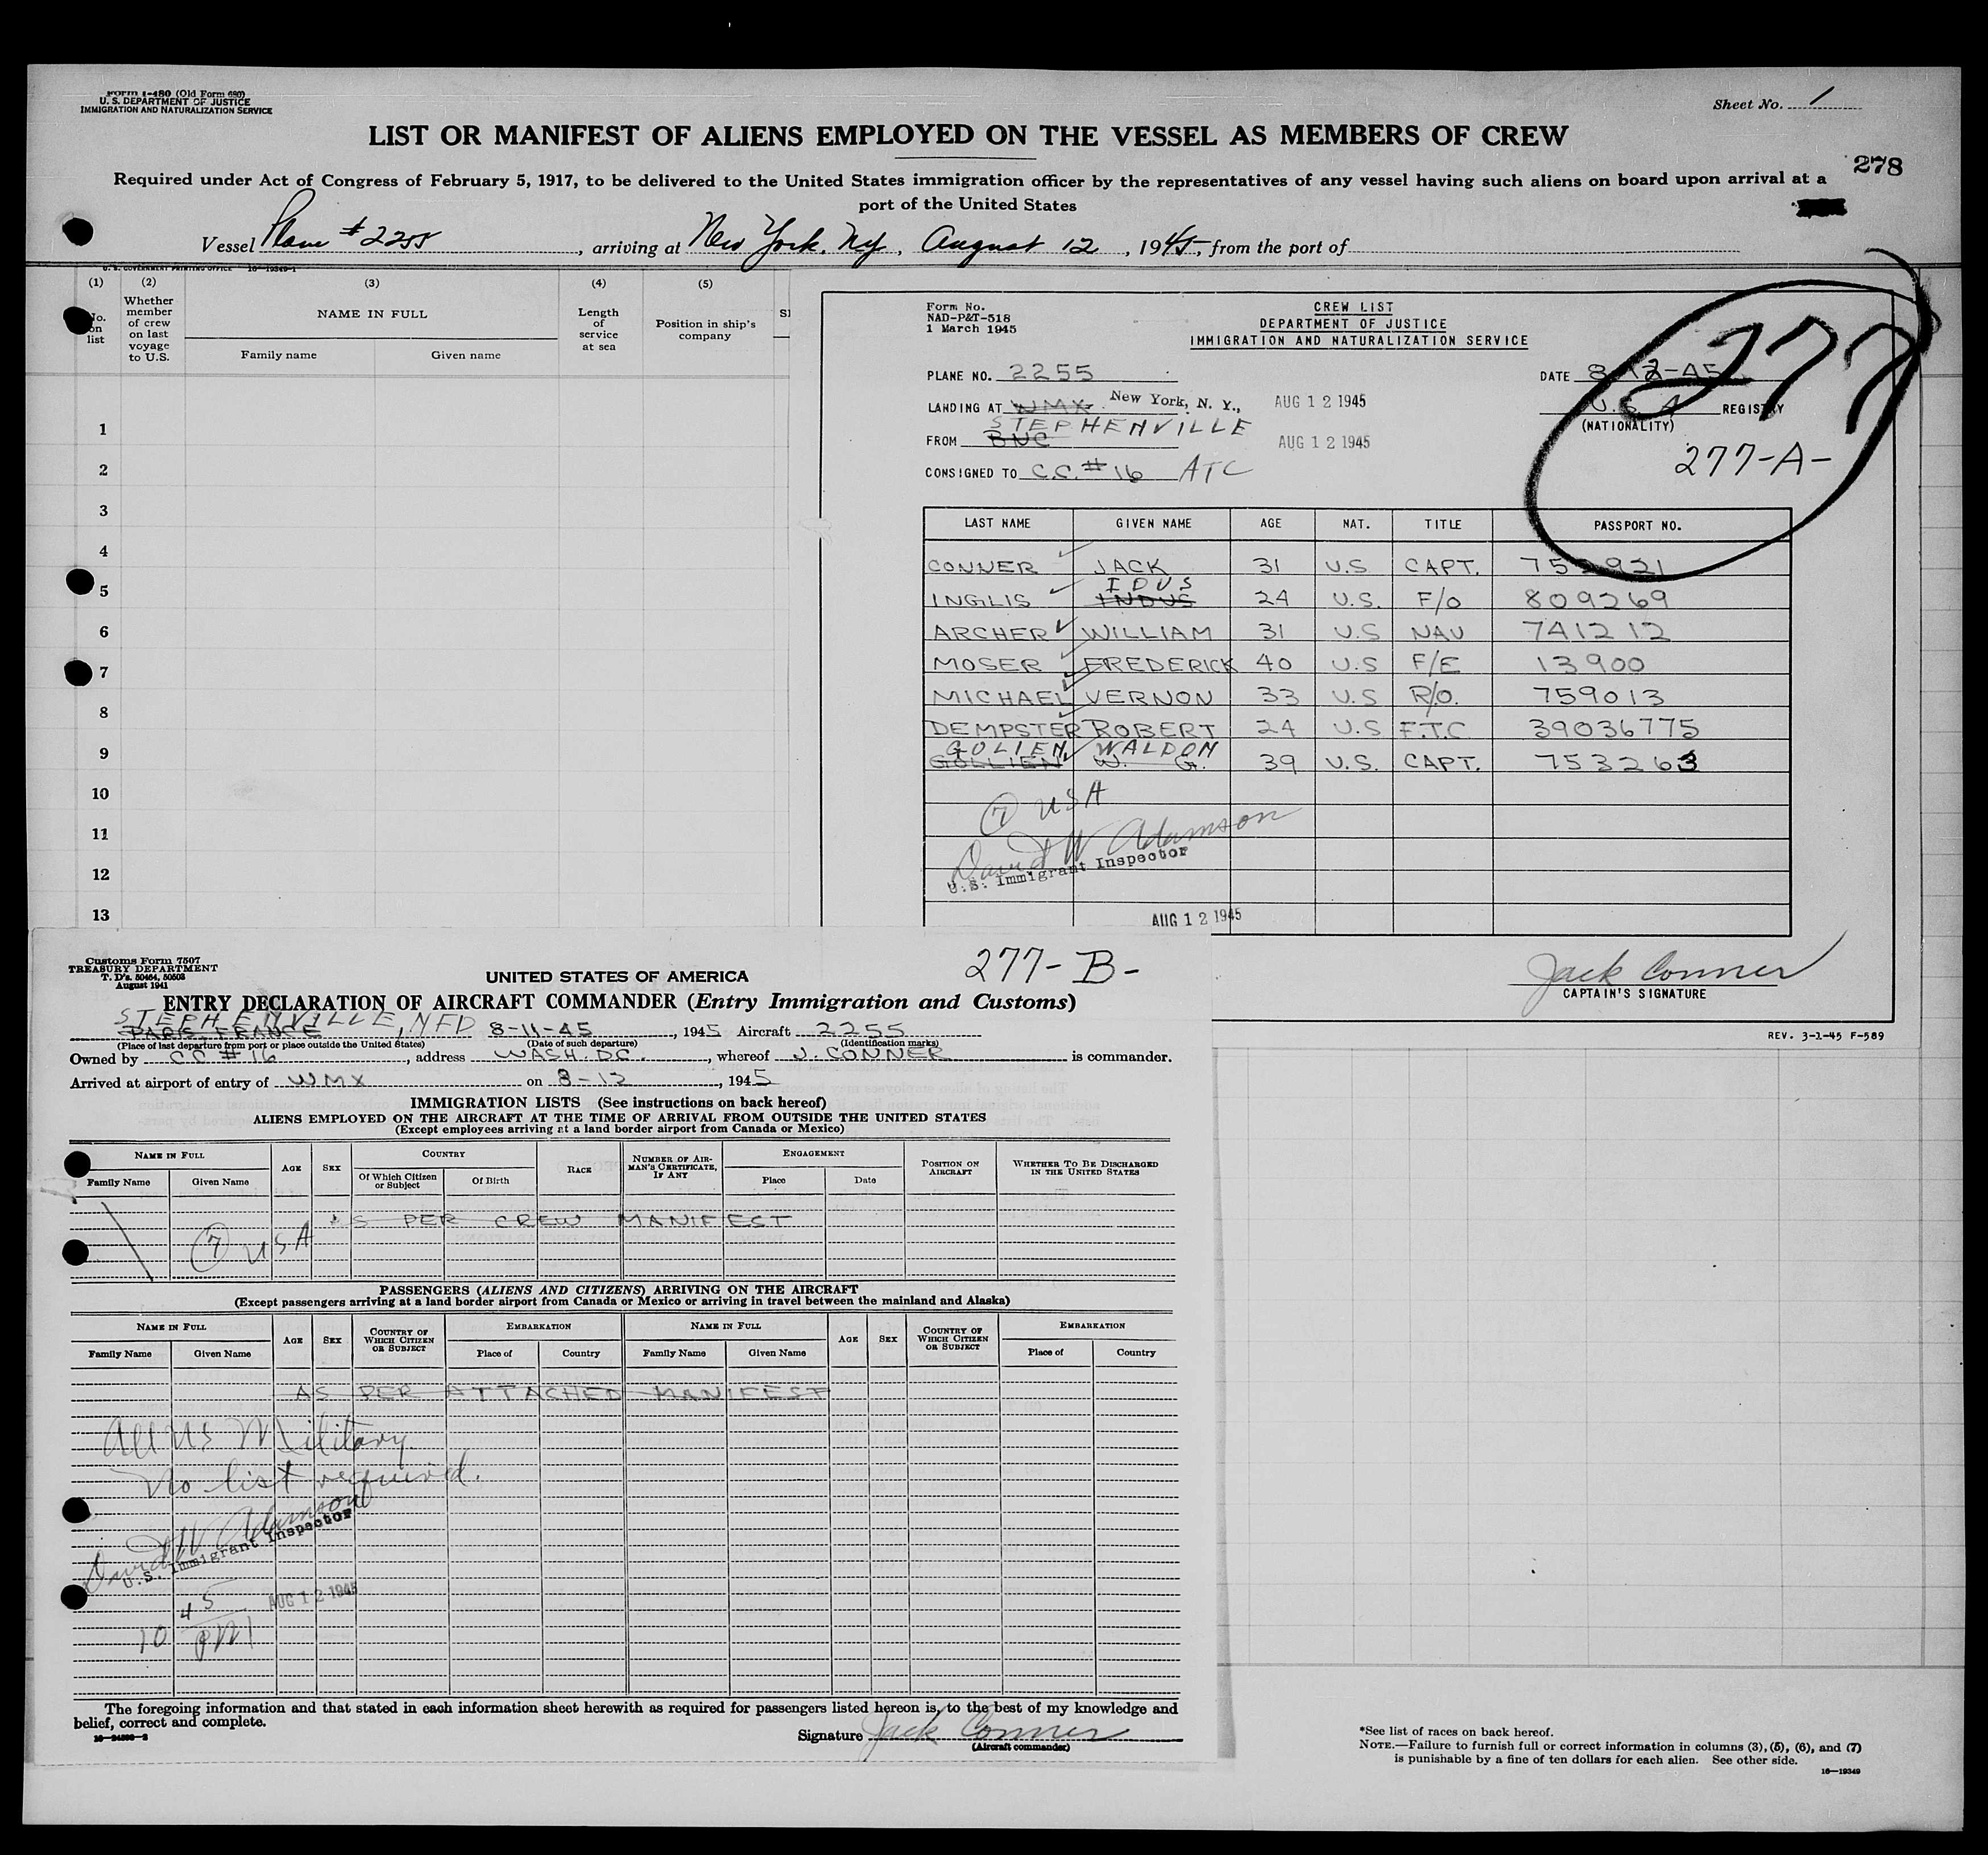 Form I-480 (Old Form 680)
U. S. DEPARTMENT OF JUSTICE
IMMIGRATION AND NATURALIZATION SERVICE
Sheet No. 1
LIST OR MANIFEST OF ALIENS EMPLOYED ON THE VESSEL AS MEMBERS OF CREW
278
Required under Act of Congress of February 5, 1917, to be delivered to the United States immigration officer by the representatives of any vessel having such aliens on board upon arrival at a
port of the United States
Vessel Plane # 2255, arriving at New York, NY, August 12, 1945, from the port of
U. S. GOVERNMENT PRINTING OFFICE 16-19349-1
(1) (2) (3) (4) (5)
No. on list
Whether member of crew on last voyage to U.S.
NAME IN FULL
Family name Given name
Length of service at sea
Position in ship's company
1
2
3
4
5
6
7
8
9
10
11
12
13
Form No.
NAD-P&T-518
1 March 1945
CREW LIST
DEPARTMENT OF JUSTICE
IMMIGRATION AND NATURALIZATION SERVICE
277
PLANE NO. 2255
DATE 8-12-45
LANDING AT WMX New York, N. Y., AUG 12 1945
U.S.A REGISTRY
(NATIONALITY)
STEPHENVILLE
FROM BNC AUG 12 1945
277-A-
CONSIGNED TO C.C. # 16 ATC
LAST NAME GIVEN NAME AGE NAT. TITLE PASSPORT NO.
CONNER JACK 31 U.S CAPT. 752921
IDUS
INGLIS INDUS 24 U.S. F/O 809269
ARCHER WILLIAM 31 U.S NAV 741212
MOSER FREDERICK 40 U.S F/E 13900
MICHAEL VERNON 33 U.S R/O. 759013
DEMPSTER ROBERT 24 U.S F.T.C 39036775
GOLIEN, WALDON
GOLLIEN W. G. 39 U.S. CAPT. 753263
(7) USA
David W Adamson
U.S. Immigrant Inspector
AUG 12 1945
Jack Conner
CAPTAIN'S SIGNATURE
REV. 3-1-45 F-589
Customs Form 7507
TREASURY DEPARTMENT
T. D's. 50464, 50503
August 1941
277-B-
UNITED STATES OF AMERICA
ENTRY DECLARATION OF AIRCRAFT COMMANDER (Entry Immigration and Customs)
STEPHENVILLE, NFD
PARIS FRANCE 8-11-45, 1945 Aircraft 2255
(Place of last departure from port or place outside the United States) (Date of such departure) (Identification marks)
Owned by CC # 16, address WASH. DC., whereof J. CONNER is commander.
Arrived at airport of entry of WMX on 8-12, 1945
IMMIGRATION LISTS (See instructions on back hereof)
ALIENS EMPLOYED ON THE AIRCRAFT AT THE TIME OF ARRIVAL FROM OUTSIDE THE UNITED STATES
(Except employees arriving at a land border airport from Canada or Mexico)
NAME IN FULL
Family Name Given Name
AGE SEX
COUNTRY
Of Which Citizen or Subject Of Birth
RACE
NUMBER OF AIRMAN'S CERTIFICATE, IF ANY
ENGAGEMENT
Place Date
POSITION ON AIRCRAFT
WHETHER TO BE DISCHARGED IN THE UNITED STATES
AS PER CREW MANIFEST
(7) USA
PASSENGERS (ALIENS AND CITIZENS) ARRIVING ON THE AIRCRAFT
(Except passengers arriving at a land border airport from Canada or Mexico or arriving in travel between the mainland and Alaska)
NAME IN FULL AGE SEX COUNTRY OF WHICH CITIZEN OR SUBJECT EMBARKATION NAME IN FULL AGE SEX COUNTRY OF WHICH CITIZEN OR SUBJECT EMBARKATION
Family Name Given Name Place of Country Family Name Given Name Place of Country
AS PER ATTACHED MANIFEST
All US Military
No list required.
David W Adamson
U.S. Immigrant Inspector
AUG 12 1945
10 45 PM
The foregoing information and that stated in each information sheet herewith as required for passengers listed hereon is, to the best of my knowledge and
belief, correct and complete.
Signature Jack Conner
(Aircraft commander)
*See list of races on back hereof.
NOTE.—Failure to furnish full or correct information in columns (3), (5), (6), and (7)
is punishable by a fine of ten dollars for each alien. See other side.
16—19349